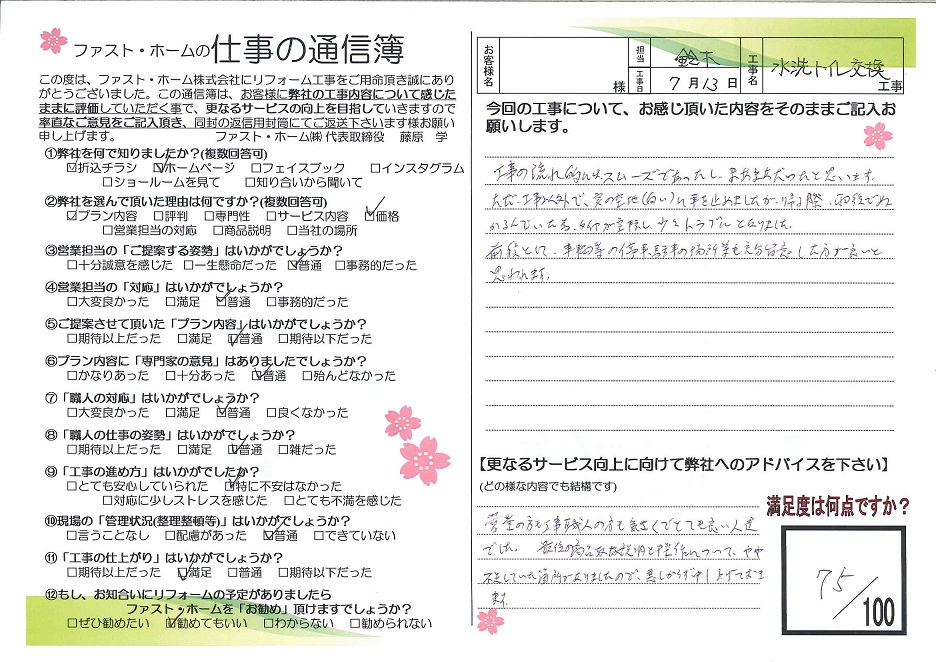 ファスト・ホームの仕事の通信簿
この度は、ファスト・ホーム株式会社にリフォーム工事をご用命頂き誠にあり
がとうございました。この通信簿は、お客様に弊社の工事内容について感じた
ままに評価していただく事で、更なるサービスの向上を目指していきますので
率直なご意見をご記入頂き、同封の返信用封筒にてご返送下さいます様お願い
申し上げます。 ファスト・ホーム㈱ 代表取締役 藤原 学
①弊社を何で知りましたか？(複数回答可)
☑折込チラシ ☑ホームページ □フェイスブック □インスタグラム
□ショールームを見て □知り合いから聞いて
②弊社を選んで頂いた理由は何ですか？(複数回答可)
☑プラン内容 □評判 □専門性 □サービス内容 ☑価格
□営業担当の対応 □商品説明 □当社の場所
③営業担当の「ご提案する姿勢」はいかがでしょうか？
□十分誠意を感じた □一生懸命だった ☑普通 □事務的だった
④営業担当の「対応」はいかがでしょうか？
□大変良かった □満足 ☑普通 □事務的だった
⑤ご提案させて頂いた「プラン内容」はいかがでしょうか？
□期待以上だった □満足 ☑普通 □期待以下だった
⑥プラン内容に「専門家の意見」はありましたでしょうか？
□かなりあった □十分あった ☑普通 □殆んどなかった
⑦「職人の対応」はいかがでしょうか？
□大変良かった □満足 ☑普通 □良くなかった
⑧「職人の仕事の姿勢」はいかがでしょうか？
□期待以上だった □満足 ☑普通 □雑だった
⑨「工事の進め方」はいかがでしたか？
□とても安心していられた ☑特に不安はなかった
□対応に少しストレスを感じた □とても不満を感じた
⑩現場の「管理状況(整理整頓等)」はいかがでしょうか？
□言うことなし □配慮があった ☑普通 □できていない
⑪「工事の仕上がり」はいかがでしょうか？
□期待以上だった ☑満足 □普通 □期待以下だった
⑫もし、お知合いにリフォームの予定がありましたら
ファスト・ホームを「お勧め」頂けますでしょうか？
□ぜひ勧めたい ☑勧めてもいい □わからない □勧められない
お客様名 様 担当 鈴木 工事日 7月13日 工事名 水洗トイレ交換 工事
今回の工事について、お感じ頂いた内容をそのままご記入お
願いします。
工事の流れ的にはスムーズであったし、まあまあだったと思います。
ただ、工事以外で、家の空地(白い)に車を止めましたが、帰る際、
少々トラブルとなりました。
前役として、車輌等の停車、駐車の場所等も充分留意した方が良いと
思われます。
【更なるサービス向上に向けて弊社へのアドバイスを下さい】
(どの様な内容でも結構です)
営業の方も工事職人の方も気さくでとても良い人達
では。 最後の商品取扱説明と操作について、やや
不足していた箇所がありましたので、悪しからず申し上げておき
ます。
満足度は何点ですか？
75/100